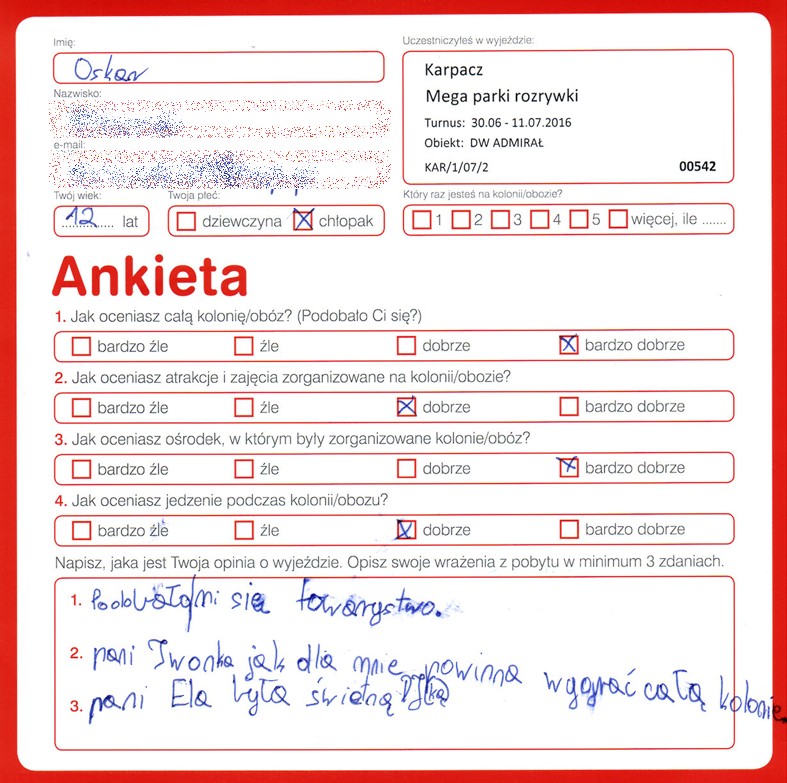 Imię:
Oskar
Uczestniczyłeś w wyjeździe:
Karpacz
Mega parki rozrywki
Turnus: 30.06 - 11.07.2016
Obiekt: DW ADMIRAŁ
KAR/1/07/2 00542
Nazwisko:
e-mail:
Twój wiek:
12 lat
Twoja płeć:
dziewczyna chłopak
Który raz jesteś na kolonii/obozie?
1 2 3 4 5 więcej, ile .......
Ankieta
1. Jak oceniasz całą kolonię/obóz? (Podobało Ci się?)
bardzo źle źle dobrze bardzo dobrze
2. Jak oceniasz atrakcje i zajęcia zorganizowane na kolonii/obozie?
bardzo źle źle dobrze bardzo dobrze
3. Jak oceniasz ośrodek, w którym były zorganizowane kolonie/obóz?
bardzo źle źle dobrze bardzo dobrze
4. Jak oceniasz jedzenie podczas kolonii/obozu?
bardzo źle źle dobrze bardzo dobrze
Napisz, jaka jest Twoja opinia o wyjeździe. Opisz swoje wrażenia z pobytu w minimum 3 zdaniach.
1. Podobało mi się towarystwo.
2. pani Iwonka jak dla mnie powinna wygrać całą kolonie
3. pani Ela była świetną DJką